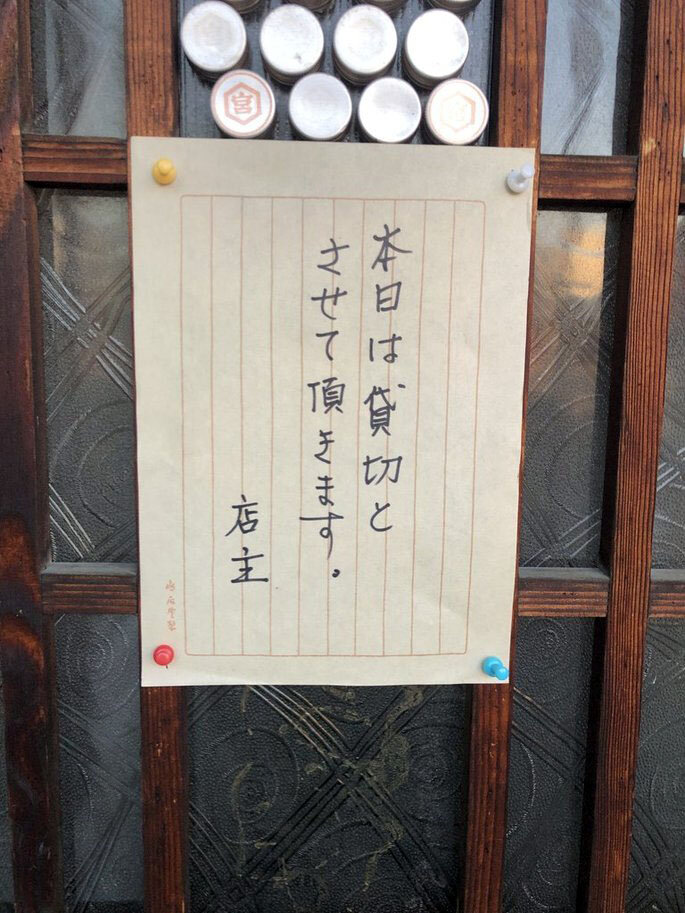 宮
宮
本日は貸切と
させて頂きます。
店主